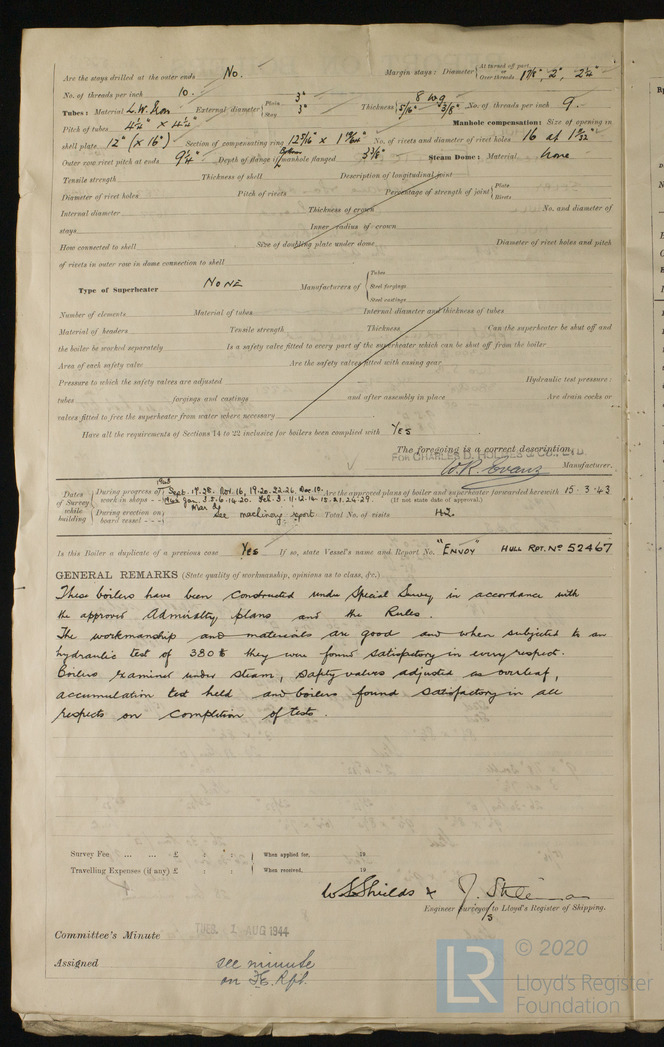 Are the stays drilled at the outer ends No. Margin stays: Diameter { At turned off part, or Over threads 1 7/8", 2", 2 1/4"
No. of threads per inch 10.
Tubes: Material L.W. Iron External diameter { Plain 3" Stay 3" Thickness { 8 WG 5/16" 3/8" No. of threads per inch 9.
Pitch of tubes 4 1/4" x 4 1/4" Manhole compensation: Size of opening in
shell plate 12" (x 16") Section of compensating ring No. of rivets and diameter of rivet holes 16 at 1 9/32"
Outer row rivet pitch at ends 9 1/4" Depth of flange if manhole flanged Bottom Steam Dome: Material None
Tensile strength Thickness of shell Description of longitudinal joint
Diameter of rivet holes Pitch of rivets Percentage of strength of joint { Plate Rivets
Internal diameter Thickness of crown No. and diameter of
stays Inner radius of crown
How connected to shell Size of doubling plate under dome Diameter of rivet holes and pitch
of rivets in outer row in dome connection to shell
Type of Superheater NONE Manufacturers of { Tubes Steel forgings Steel castings
Number of elements Material of tubes Internal diameter and thickness of tubes
Material of headers Tensile strength Thickness Can the superheater be shut off and
the boiler be worked separately Is a safety valve fitted to every part of the superheater which can be shut off from the boiler
Area of each safety valve Are the safety valves fitted with easing gear
Pressure to which the safety valves are adjusted Hydraulic test pressure:
tubes forgings and castings and after assembly in place Are drain cocks or
valves fitted to free the superheater from water where necessary
Have all the requirements of Sections 14 to 22 inclusive for boilers been complied with Yes
The foregoing is a correct description,
FOR CHARLES D. HOLMES & CO., LTD.
W.R. Evans Manufacturer.
Dates of Survey while building { During progress of work in shops - - Sept. 17.28. Nov. 16, 19.20. 22.26. Dec. 10. Jan. 3.5.6.14.20. Feb. 3.11.12.14.15.21.24.29. Mar
Are the approved plans of boiler and superheater forwarded herewith 15.3.43
(If not state date of approval.)
During erection on board vessel - - - See machinery report. Total No. of visits 42.
Is this Boiler a duplicate of a previous case Yes If so, state Vessel's name and Report No. "ENVOY" HULL RPT. No 52467
GENERAL REMARKS (State quality of workmanship, opinions as to class, &c.)
These boilers have been constructed under Special Survey in accordance with
the approved Admiralty plans and the Rules.
The workmanship and materials are good and when subjected to an
hydraulic test of 380 lb they were found satisfactory in every respect.
Boilers examined under steam, safety valves adjusted as overleaf,
accumulation test held and boilers found satisfactory in all
respects on completion of tests.
Survey Fee ... ... £ : : When applied for, 19
Travelling Expenses (if any) £ : : When received, 19
W S Shields &
Engineer Surveyor/s to Lloyd's Register of Shipping.
Committee's Minute TUES. 1 AUG 1944
Assigned see minute
on F.E. Rpt.
© 2020
LR Lloyd's Register
Foundation